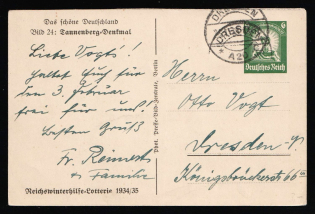 Das schöne Deutschland
Bild 24: Tannenberg-Denkmal
Liebe Vogts!
Haltet Euch für
den 3. Februar
frei für uns!
Besten Gruß
Fr. Reinert
u Familie
Reichswinterhilfe-Lotterie 1934/35
DRESDEN
DRESDEN
A 2
6
Deutsches Reich
Herrn
Otto Vogt
Dresden-
Königsbrückerst 66